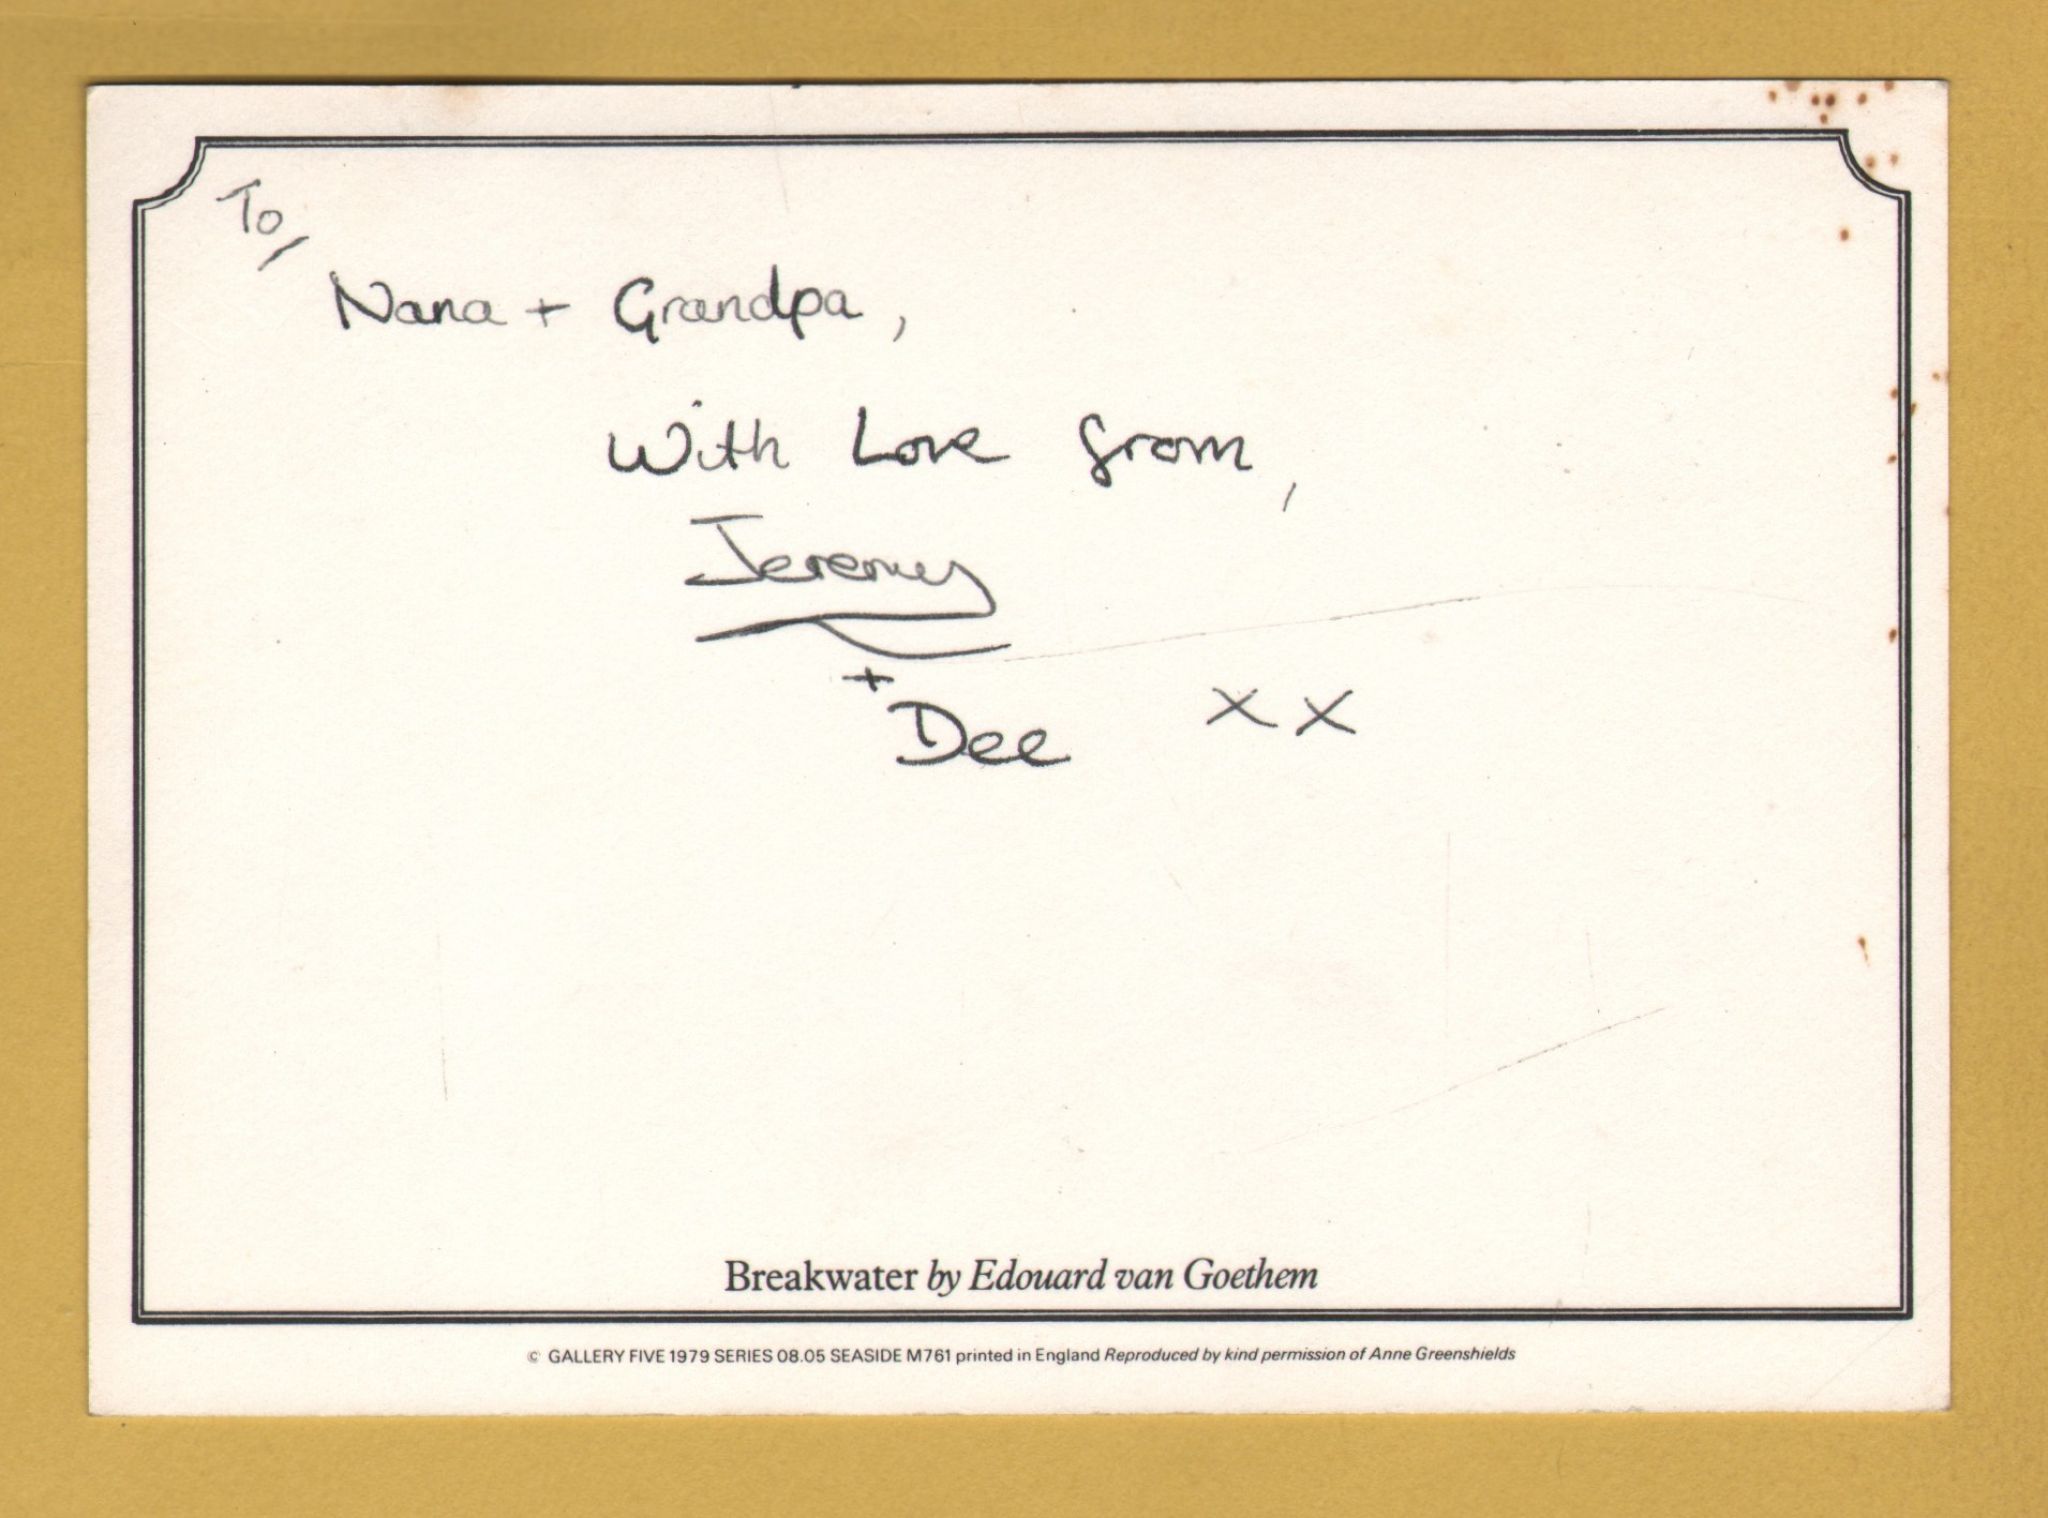 To,
Nana + Grandpa,
With Love from,
Jeremy
+
Dee x x
Breakwater by Edouard van Goethem
© GALLERY FIVE 1979 SERIES 08.05 SEASIDE M761 printed in England Reproduced by kind permission of Anne Greenshields